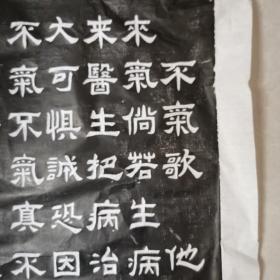 不氣歌 他
来氣倘若生病
来醫生把病治
大可惧誠恐因
不氣不氣真不